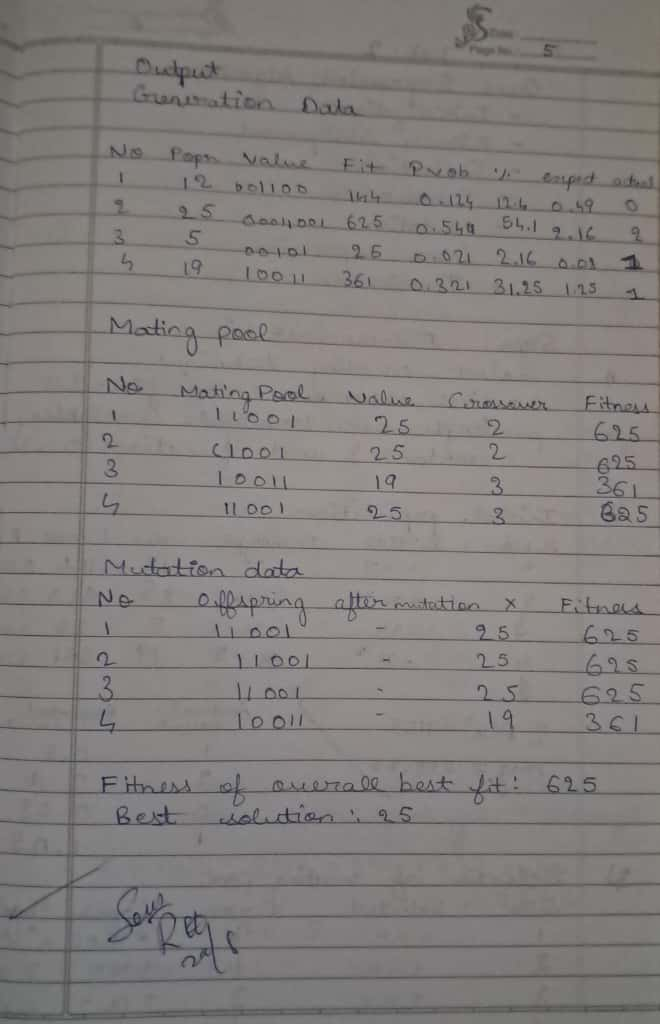 Page No. 5
Output
Generation Data
No Popn Value Fit Prob % expect actual
1 12 001100 144 0.124 12.4 0.49 0
2 25 0001001 625 0.549 54.1 2.16 2
3 5 00101 25 0.021 2.16 0.08 1
4 19 10011 361 0.321 31.25 1.25 1
Mating pool
No Mating Pool Value Crossover Fitness
1 11001 25 2 625
2 11001 25 2 625
3 10011 19 3 361
4 11001 25 3 625
Mutation data
No Offspring after mutation X Fitness
1 11001 - 25 625
2 11001 - 25 625
3 11001 - 25 625
4 10011 - 19 361
Fitness of overall best fit: 625
Best solution: 25